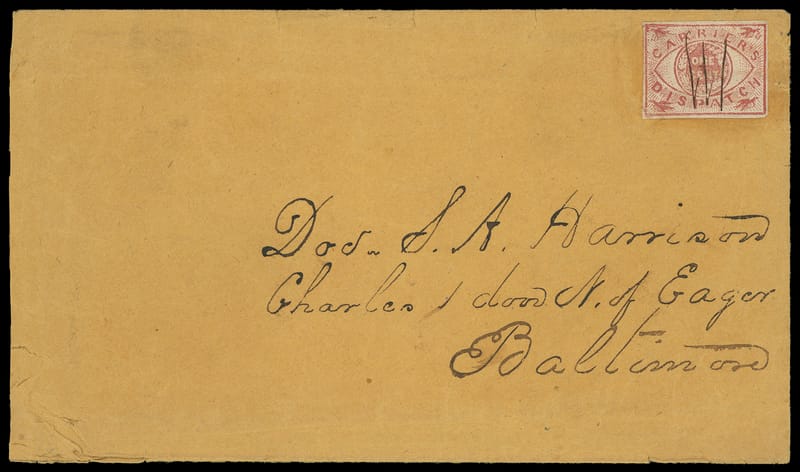 CARRIERS
ONE CENT
DISPATCH
Doc. S. A. Harrison
Charles 1 door N. of Eager
Baltimore